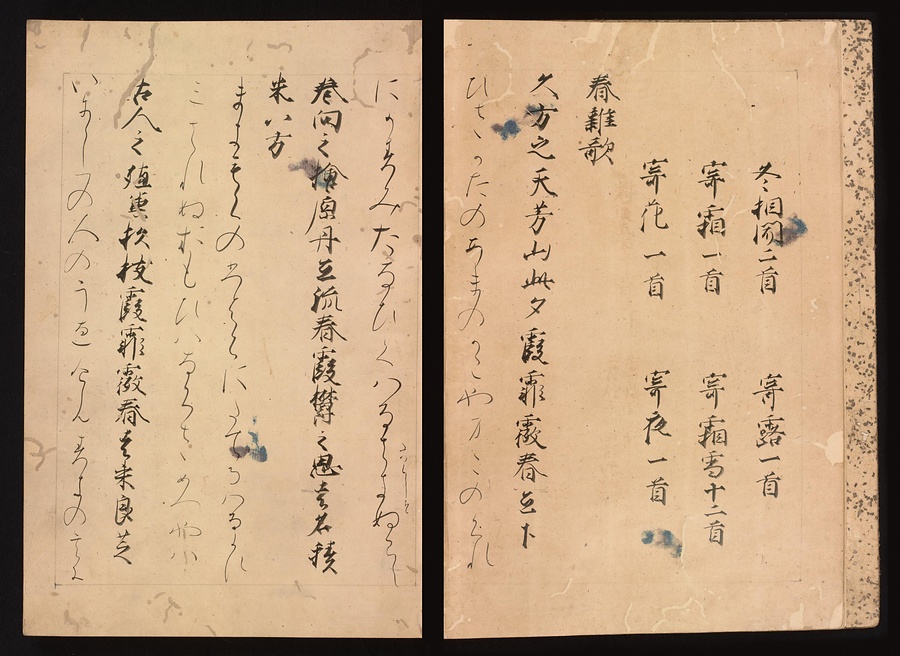 冬相聞二首 寄露一首
寄霜一首 寄霜雪十二首
寄花一首 寄夜一首
春雜歌
久方之天芳山此夕霞霏霺春立下
ひさかたのあまのかくやまこのくれ
にかすみたなひくはるたちぬらし
巻向之檜原丹立流春霞欝之思者名積
米八方
まきもくのひはらにたてるはるか
れぬおもひはなつさめやは
古人之殖兼杦枝霞霏霺春者来良芝
いにしへの人のうゑけんすきの